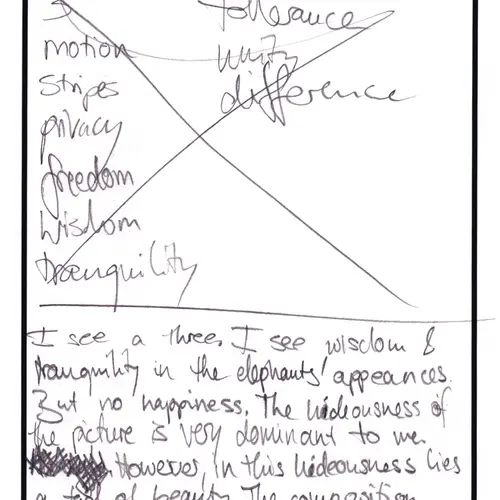 tolerance
motion unity
stripes difference
privacy
freedom
wisdom
tranquility
I see a three. I see wisdom &
tranquility in the elephants' appeances.
But no happiness. The hideousness of
the picture is very dominant to me.
However, in this hideousness lies
a of beauty. The composition